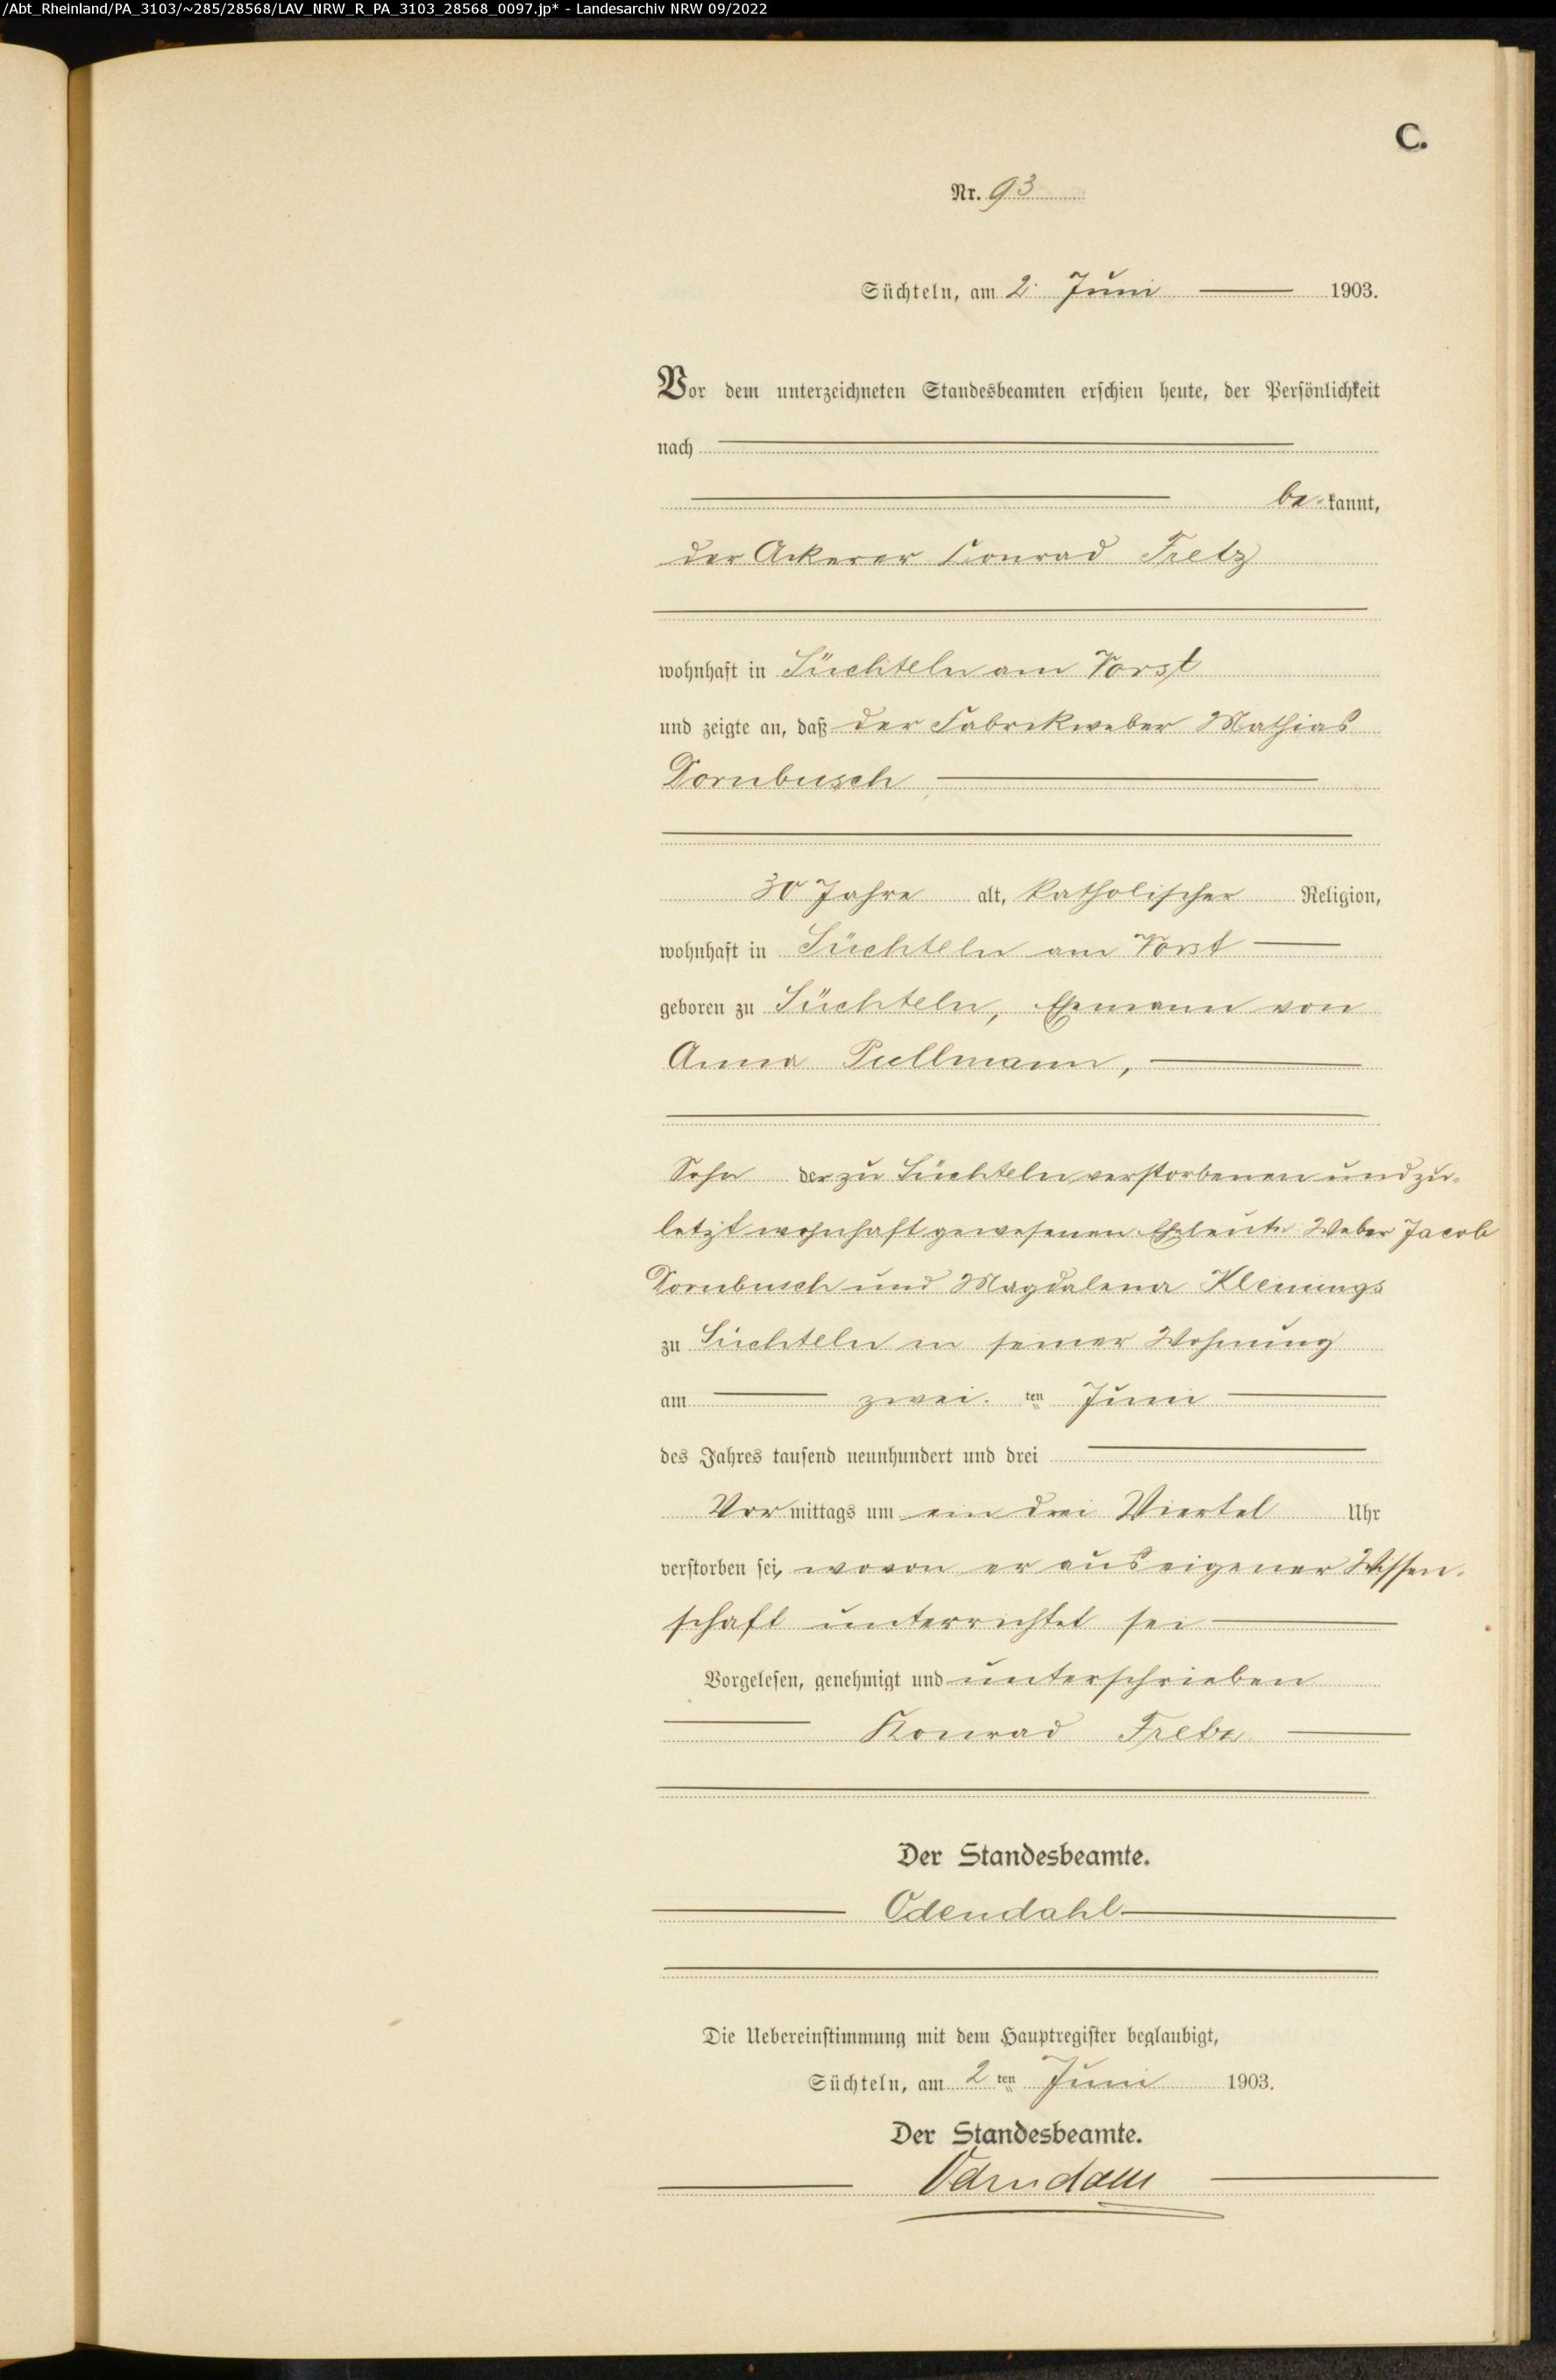 /Abt_Rheinland/PA_3103/~285/28568/LAV_NRW_R_PA_3103_28568_0097.jp* - Landesarchiv NRW 09/2022
C.
Nr. 93
Süchteln, am 2. Juni 1903.
Vor dem unterzeichneten Standesbeamten erschien heute, der Persönlichkeit
nach
be kannt,
der Ackerer Conrad Fretz
wohnhaft in Süchteln am Vorst
und zeigte an, daß der Fabrikweber Mathias
Dornbusch
30 Jahre alt, katholischer Religion,
wohnhaft in Süchteln am Vorst
geboren zu Süchteln, Ehemann von
Anna Pellmann,
Sohn der zu Süchteln verstorbenen und zu-
letzt wohnhaft gewesenen Eheleute Weber Jacob
Dornbusch und Magdalena
zu Süchteln in seiner Wohnung
am zwei ten Juni
des Jahres tausend neunhundert und drei
Vor mittags um ein drei Viertel Uhr
verstorben sei, wovon er aus eigener Wissen-
schaft unterrichtet sei
Vorgelesen, genehmigt und unterschrieben
Konrad Fretz
Der Standesbeamte.
Odendahl
Die Uebereinstimmung mit dem Hauptregister beglaubigt,
Süchteln, am 2 ten Juni 1903.
Der Standesbeamte.
Odendahl